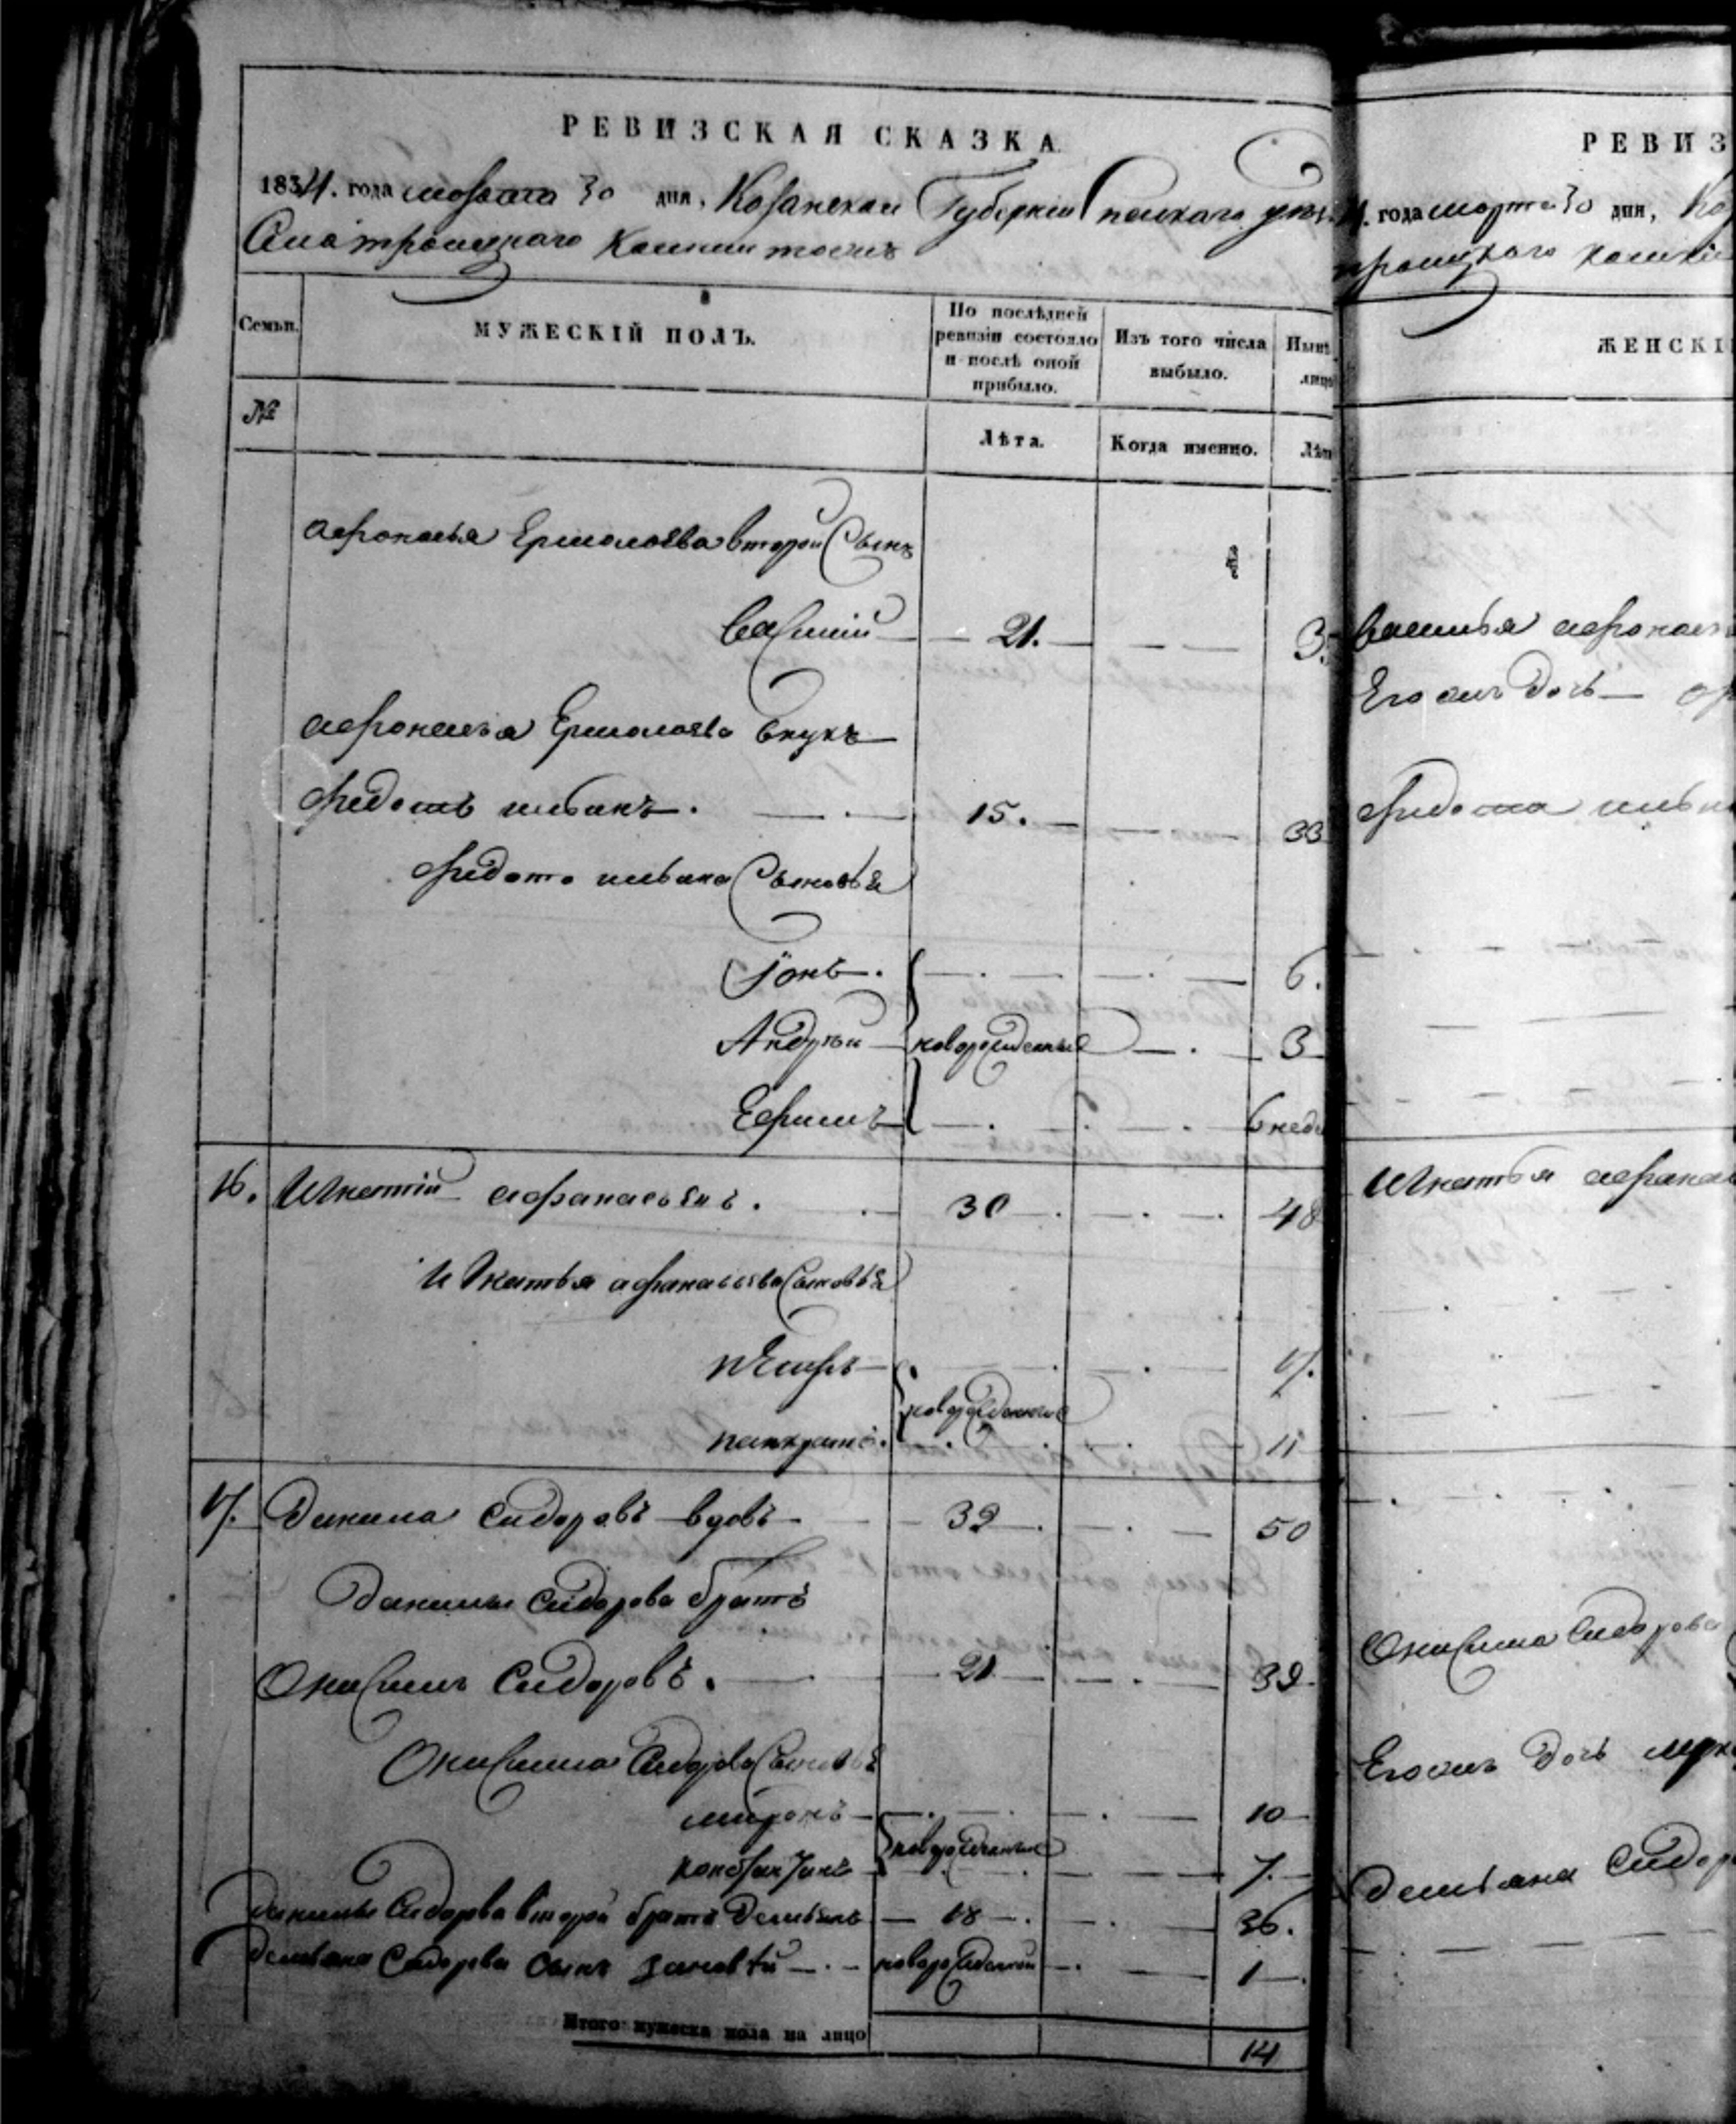 РЕВИЗСКАЯ СКАЗКА
1834. года марта 30 дня, Казанской Губернии Спаскаго уез
троицкаго
Семьи.
МУЖЕСКІЙ ПОЛЪ.
По послѣдней ревизіи состояло и послѣ оной прибыло.
Изъ того числа выбыло.
Нынѣ
лицо
№
Лѣта.
Когда именно.
Лѣт
афонасья Ермолаева второй Сынъ
Василий 21. 3
афонасья Ермолаева внукъ
федотъ иванъ. 15. 33
федота ивана Сыновья
Іонъ. 6.
Андрей новорожденные 3
Ефимъ 6 неде
16. Игнатий афанасьевъ. 30 48
Игнатья афанасьева Сыновья
17.
новорожденные
панкратъ. 11
17. Данила Сидоровъ вдовъ 32 50
Данилы Сидорова братъ
Онисимъ Сидоровъ. 21 39
Онисима Сидорова Сыновья
миронъ 10
новорожденные
7.
Данилы Сидорова второй братъ Демьянъ 18. 36.
Демьяна Сидорова Сынъ новорожденный 1
Итого мужеска пола на лицо 14
РЕВИЗ
4. года марта 30 дня, Ка
троицкаго
ЖЕНСКІ
Василья афонась
Его дочь
федота ива
Игнатья афанас
Онисима Сидорова
Его дочь
Демьяна Сидор